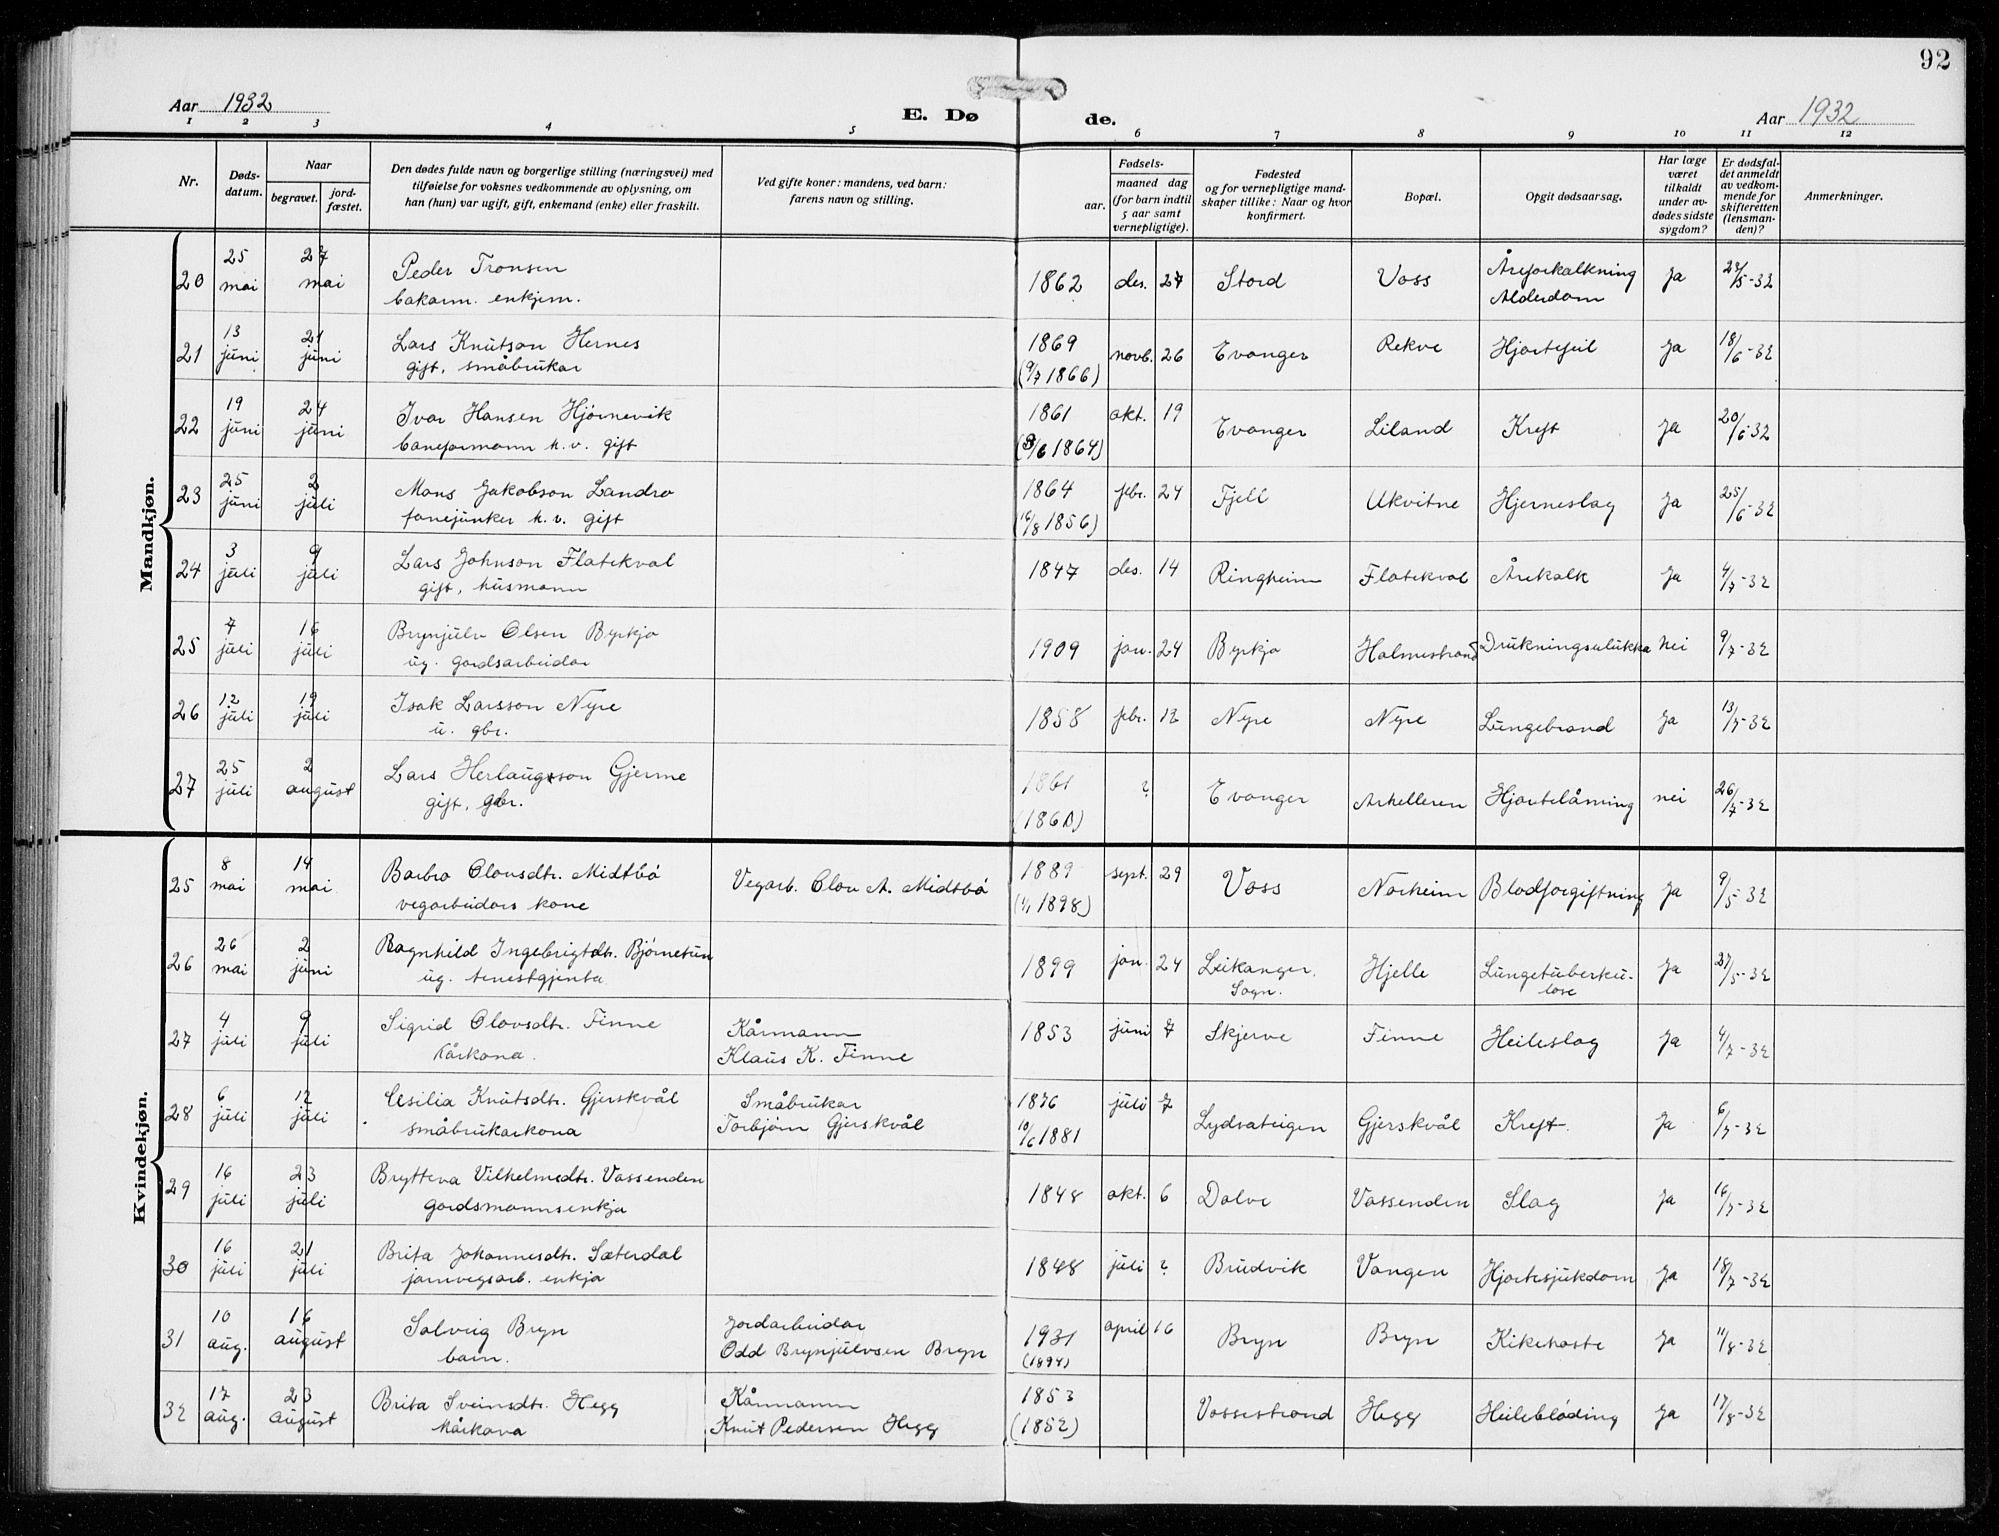 92
Aar 1932
E. Dø
de.
Aar 1932
1 2 3 4 5 6 7 8 9 10 11 12
Nr.
Døds-
datum.
Naar
begravet.
jord-
fæstet.
Den dødes fulde navn og borgerlige stilling (næringsvei) med
tilføielse for voksnes vedkommende av oplysning, om
han (hun) var ugift, gift, enkemand (enke) eller fraskilt.
Ved gifte koner: mandens, ved barn:
farens navn og stilling.
Fødsels-
aar.
maaned dag
(for barn indtil
5 aar samt
vernepligtige).
Fødested
og for vernepligtige mand-
skaper tillike: Naar og hvor
konfirmert.
Bopæl.
Opgit dødsaarsag.
Har læge
været
tilkaldt
under av-
dødes sidste
sygdom?
Er dødsfal-
det anmeldt
av vedkom-
mende for
skifteretten
(lensman-
den)?
Anmerkninger.
Mandkjøn.
20 25 mai 27 mai Peder Tronsen 1862 des. 27 Stord Voss Åreforkalkning Ja
bakarm. enkjem. Alderdom
21 13 juni 21 juni Lars Knutson Hernes 1869 novb. 26 Evanger Rekve Hjortefeil Ja 18/6-32
gift, småbrukar (9/7 1866)
22 19 juni 24 juni Ivar Hansen Hjørnevik 1861 okt. 19 Evanger Liland Kreft Ja 20/6-32
baneformann k.v. gift
23 25 juni 2 juli Mons Jakobson Landro 1864 febr. 24 Fjell Ukvitne Hjerneslag Ja 25/6-32
fanejunker k.v. gift (16/8 1856)
24 3 juli 9 juli Lars Johnson Flatekval 1847 des. 14 Ringheim Flatekval Årekalk Ja 4/7-32
gift, husmann
25 7 juli 16 juli Brynjulv Olsen Byrkjo 1909 jan. 24 Byrkjo Holmestrand Drukningsulukka nei 9/7-32
ug. gardsarbeidar
26 12 juli 19 juli Isak Larsson Nyre 1858 febr. 12 Nyre Nyre Lungebrand Ja 13/7-32
u. gbr.
27 25 juli 2 august Lars Herlaugsson Gjerme 1861 ? Evanger Arhelleren Hjartelåming nei 26/7-32
gift, gbr.
Kvindekjøn.
25 8 mai 14 mai Barbro Olovsdtr. Midtbö Vegarb. Olov A. Midtbö 1889 sept. 29 Voss Norheim Blodforgiftning Ja 9/5-32
vegarbeidars kone (1/1 1898)
26 26 mai 2 juni Ragnhild Ingebrigtdtr. Bjørnetun 1899 jan. 24 Leikanger Hjelle Lungetuberku- Ja 27/5-32
ug. tenestgjenta Sogn. lose
27 4 juli 9 juli Sigrid Olovsdtr. Finne Kårmann 1853 juni 7 Skjerve Finne Heileslag Ja 4/7-32
kårkona. Klaus K. Finne
28 6 juli 12 juli Cesilia Knutsdtr. Gjerskvål Småbrukar 1876 juli 7 Lydvateigen Gjerskvål Kreft. Ja 6/7-32
småbrukarkona Torbjørn Gjerskvål 10/6 1881
29 16 juli 23 juli Brytteva Vilhelmsdtr. Vassenden 1848 okt. 6 Dolve Vassenden Slag Ja 16/7-32
gardsmannsenkja
30 16 juli 21 juli Brita Johannesdtr. Sæterdal 1848 juli ? Brudvik Vangen Hjartesjukdom Ja 18/7-32
jarnvegsarb. enkja
31 10 aug. 16 august Solveig Bryn Jordarbeidar 1931 april 16 Bryn Bryn Kikehoste Ja 11/8-32
barn. Odd Brynjulvsen Bryn (1894)
32 17 aug. 23 august Brita Sveinsdtr. Hegg Kårmann 1853 Vossestrand Hegg Heileblöding Ja 17/8-32
kårkona Knut Pedersen Hegg (1852)